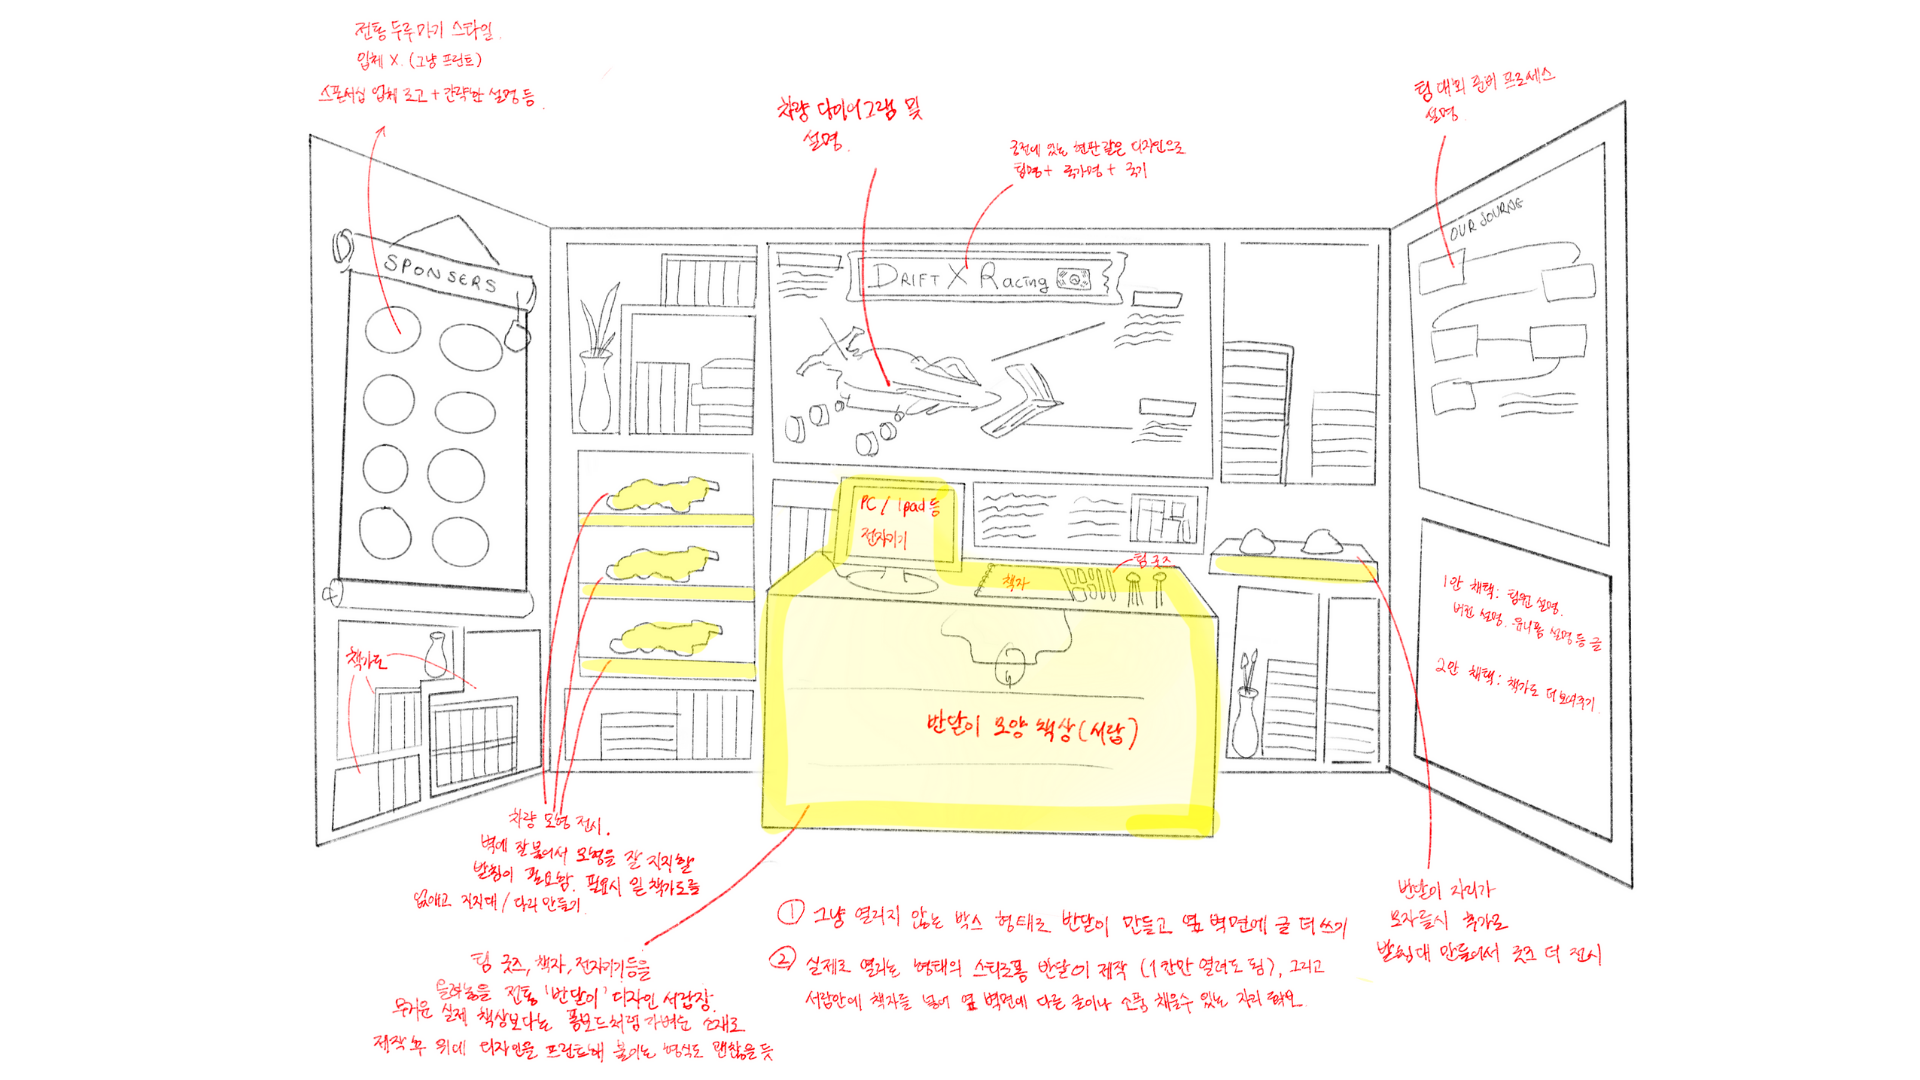 전통 두루마기 스타일.
입체 X. (그냥 프린트)
스폰서십 업체 로고 + 간략한 설명 등
차량 다이어그램 및
설명.
궁전에 있는 현판 같은 디자인으로
팀명 + 국가명 + 국기
팀 대회 준비 프로세스
설명
SPONSERS
DRIFT X Racing
OUR JOURNE
PC / Ipad 등
전자기기
책자
팀 굿즈
반닫이 모양 책상 (서랍)
책가도
1안 채택: 팀원 설명.
버전 설명. 유니폼 설명 등 글
2안 채택: 책가도 더 보여주기.
차량 모형 전시.
벽에 잘 붙어서 모형을 잘 지지할
받침이 필요함. 필요시 밑 책가도를
없애고 지지대 / 다리 만들기.
팀 굿즈, 책자, 전자기기등을
올려놓을 전통 '반닫이' 디자인 서랍장.
무거운 실제 책상보다는 폼보드처럼 가벼운 소재로
제작 후 위에 디자인을 프린트해 붙이는 형식도 괜찮을 듯
① 그냥 열리지 않는 박스 형태로 반닫이 만들고 옆 벽면에 글 더 쓰기
② 실제로 열리는 형태의 스티로폼 반닫이 제작 (1칸만 열려도 됨), 그리고
서랍안에 책자를 넣어 옆 벽면에 다른 글이나 소품 채울수 있는 자리
반닫이 자리가
모자를시 추가로
받침대 만들어서 굿즈 더 전시